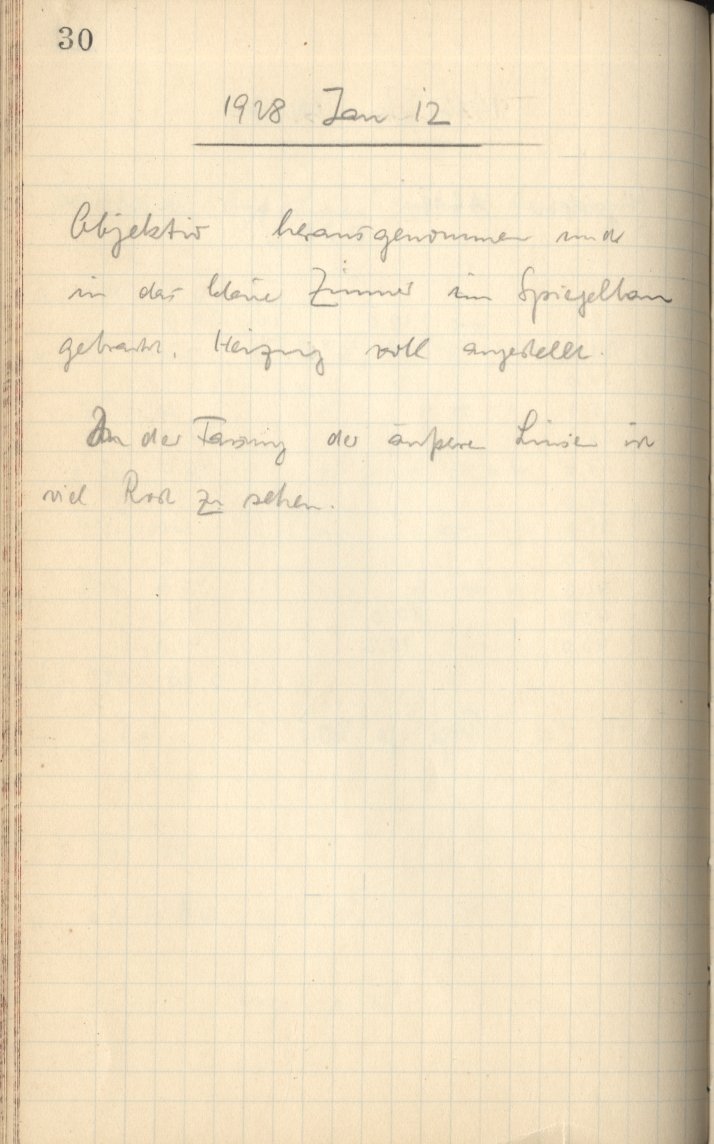 30
1928 Jan 12
Objektiv herausgenommen und
in das kleine Zimmer im Spiegelbau
gebracht. Heizung voll angestellt.
In der Fassung der äußeren Linse ist
viel Rost zu sehen.